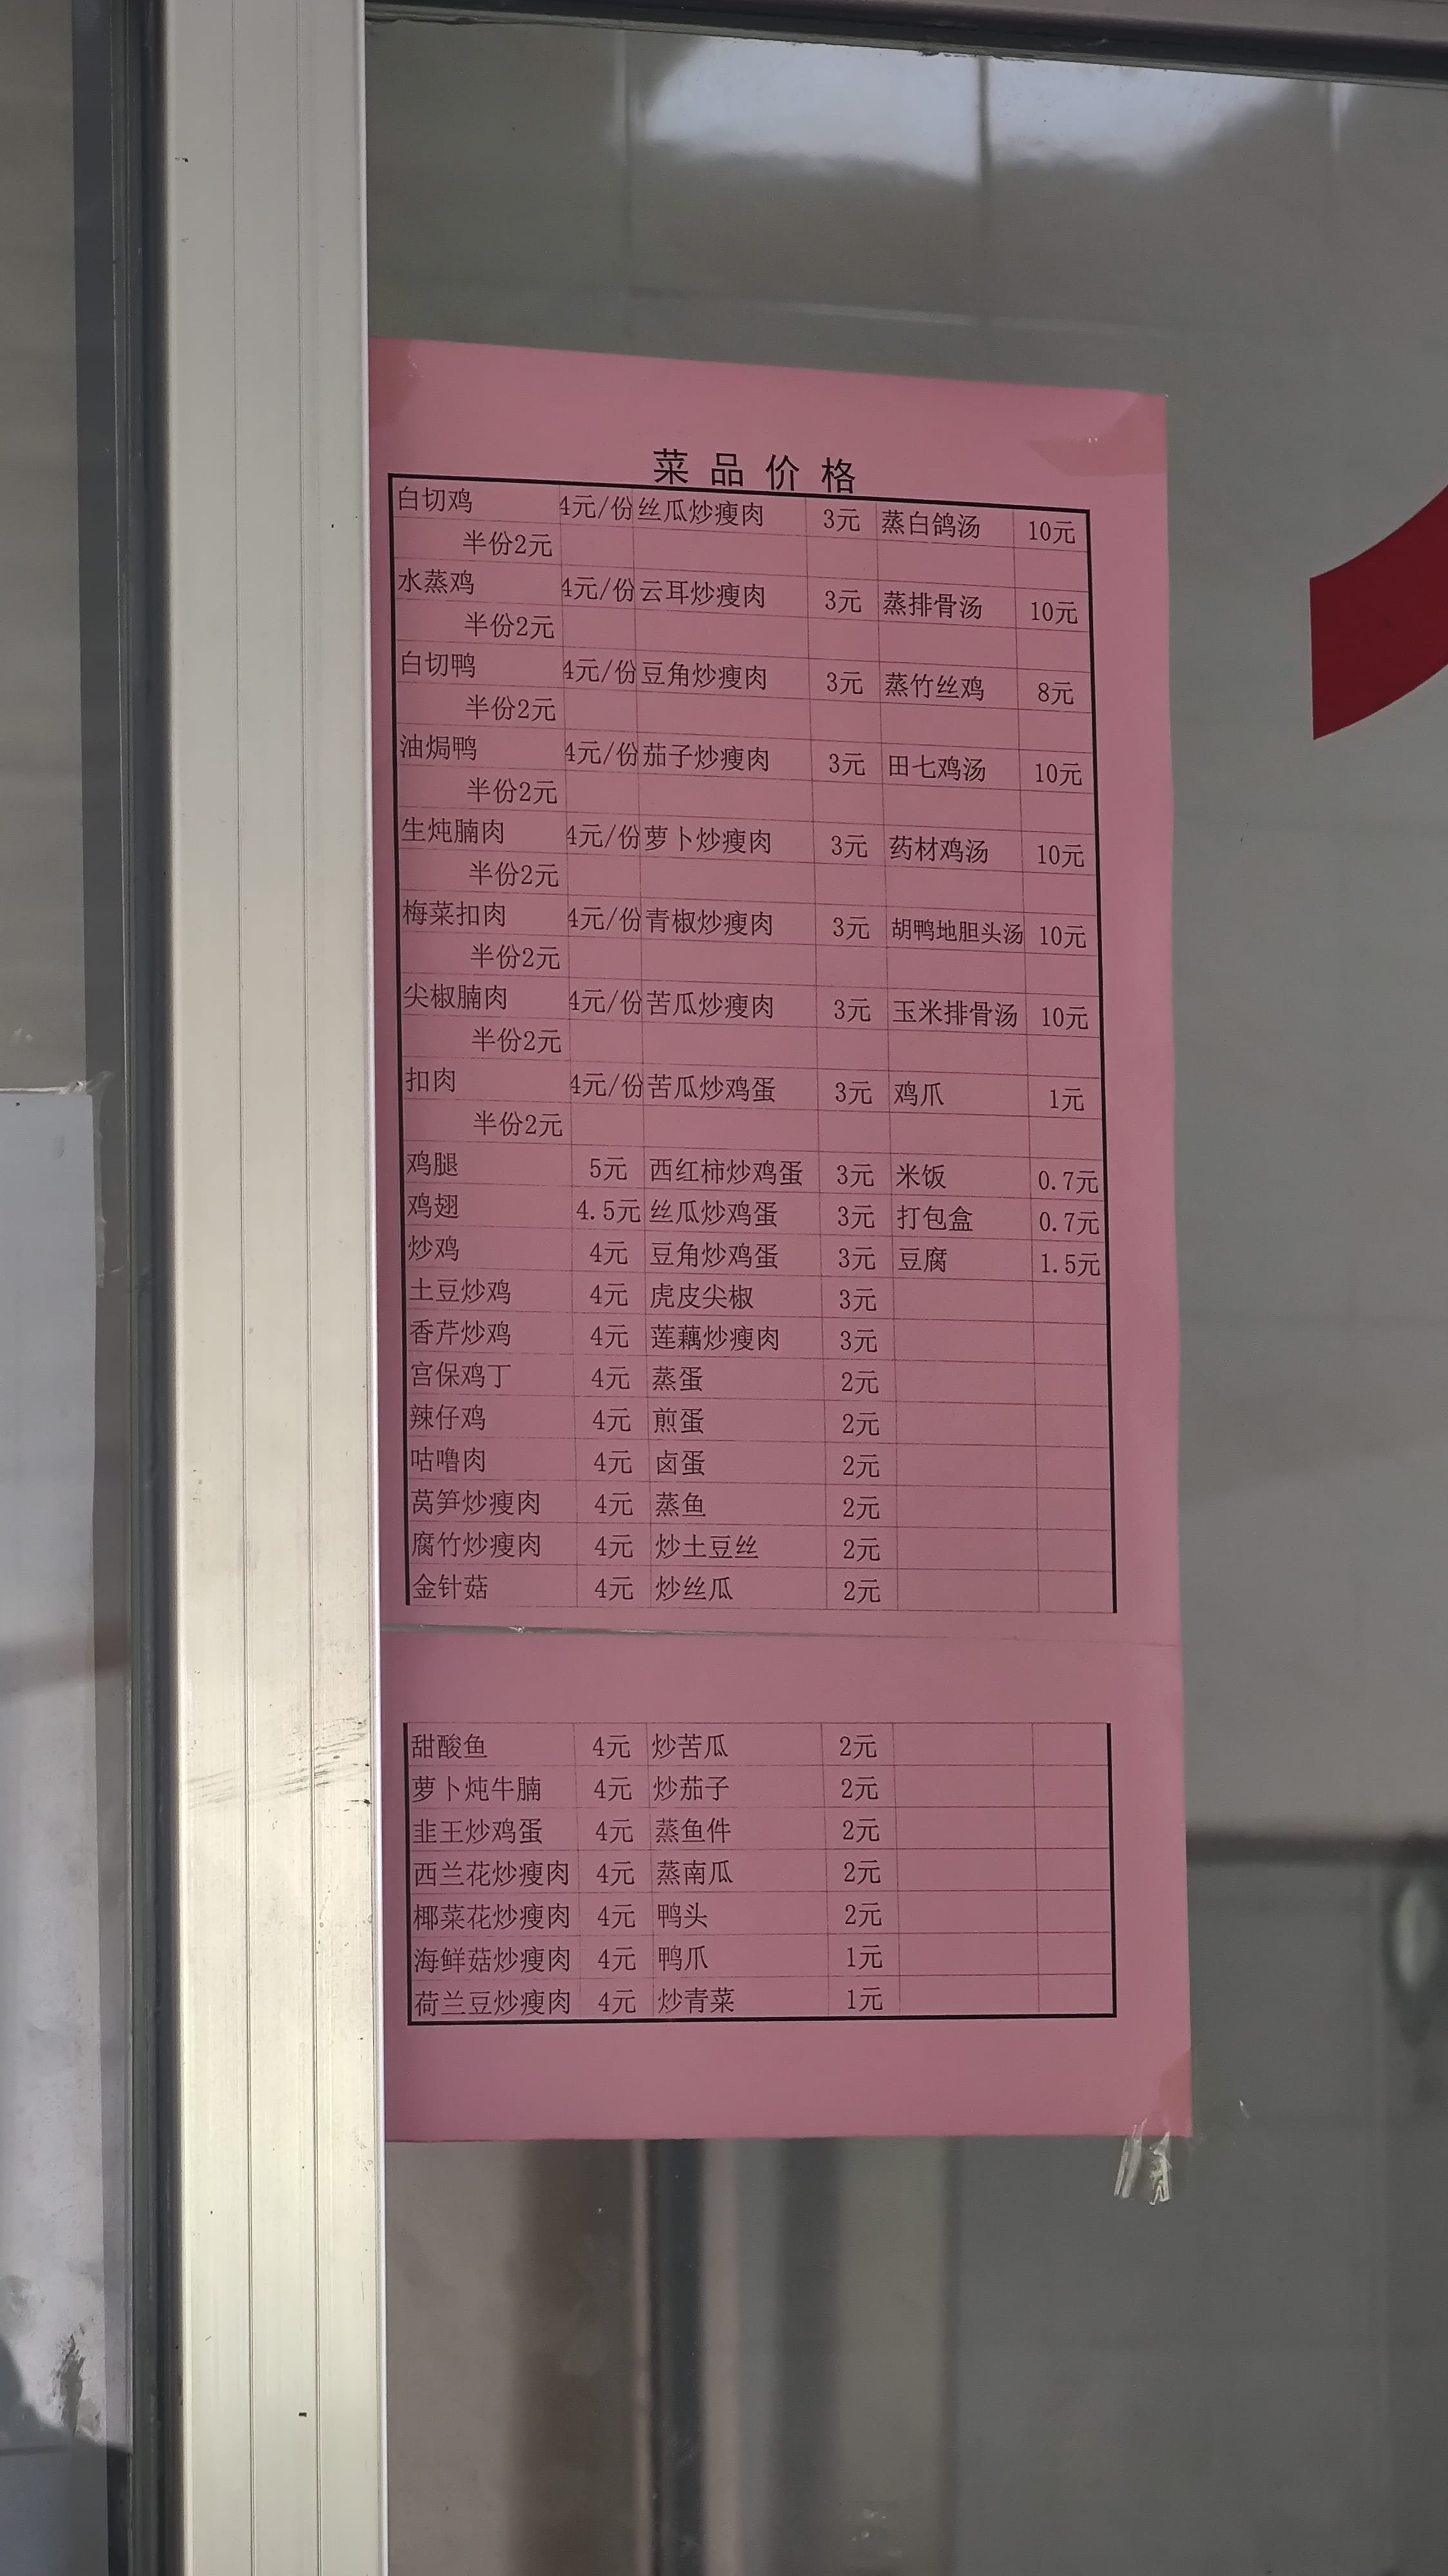 菜品价格
白切鸡 4元/份 丝瓜炒瘦肉 3元 蒸白鸽汤 10元
半份2元
水蒸鸡 4元/份 云耳炒瘦肉 3元 蒸排骨汤 10元
半份2元
白切鸭 4元/份 豆角炒瘦肉 3元 蒸竹丝鸡 8元
半份2元
油焗鸭 4元/份 茄子炒瘦肉 3元 田七鸡汤 10元
半份2元
生炖腩肉 4元/份 萝卜炒瘦肉 3元 药材鸡汤 10元
半份2元
梅菜扣肉 4元/份 青椒炒瘦肉 3元 胡鸭地胆头汤 10元
半份2元
尖椒腩肉 4元/份 苦瓜炒瘦肉 3元 玉米排骨汤 10元
半份2元
扣肉 4元/份 苦瓜炒鸡蛋 3元 鸡爪 1元
半份2元
鸡腿 5元 西红柿炒鸡蛋 3元 米饭 0.7元
鸡翅 4.5元 丝瓜炒鸡蛋 3元 打包盒 0.7元
炒鸡 4元 豆角炒鸡蛋 3元 豆腐 1.5元
土豆炒鸡 4元 虎皮尖椒 3元
香芹炒鸡 4元 莲藕炒瘦肉 3元
宫保鸡丁 4元 蒸蛋 2元
辣仔鸡 4元 煎蛋 2元
咕噜肉 4元 卤蛋 2元
莴笋炒瘦肉 4元 蒸鱼 2元
腐竹炒瘦肉 4元 炒土豆丝 2元
金针菇 4元 炒丝瓜 2元
甜酸鱼 4元 炒苦瓜 2元
萝卜炖牛腩 4元 炒茄子 2元
韭王炒鸡蛋 4元 蒸鱼件 2元
西兰花炒瘦肉 4元 蒸南瓜 2元
椰菜花炒瘦肉 4元 鸭头 2元
海鲜菇炒瘦肉 4元 鸭爪 1元
荷兰豆炒瘦肉 4元 炒青菜 1元